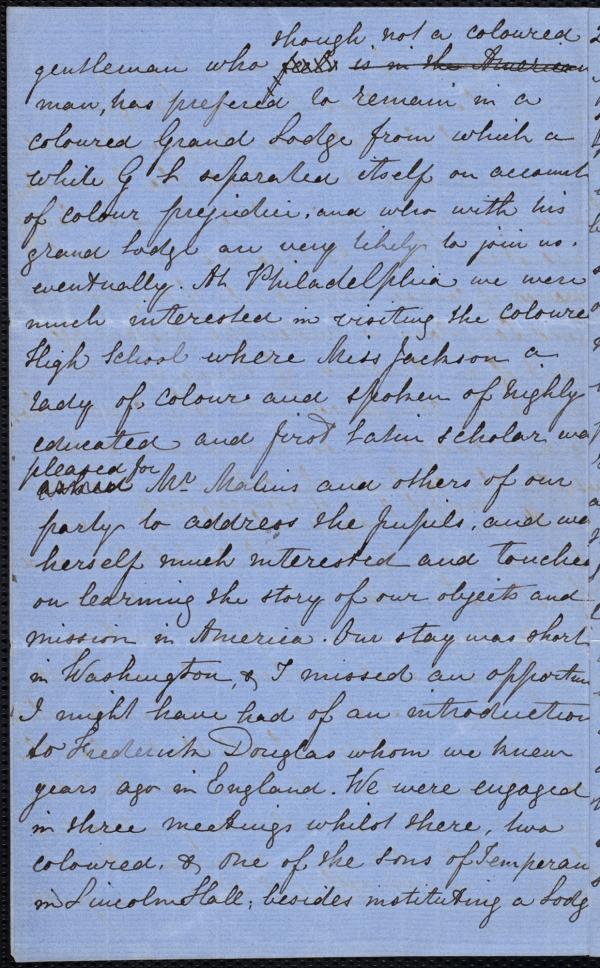 though not a coloured
gentleman who feels is in the American
man, has prefered to remain in a
coloured Grand Lodge from which a
white G L separated itself on account
of colour prejudice, and who with his
grand Lodge are very likely to join us.
eventually. At Philadelphia we were
much interested in visiting the Coloure
High School where Miss Jackson a
lady of colour and spoken of highly
educated and first Latin scholar was
pleased for
asked Mr. Malins and others of our
party to address the pupils, and was
herself much interested and touched
on learning the story of our objects and
mission in America. Our stay was short
in Washington, & I missed an opportun
I might have had of an introduction
to Frederick Douglas whom we knew
years ago in England. We were engaged
in three meetings whilst there, two
coloured, & one of the sons of Temperan
in Lincoln Hall; besides instituting a Lodg